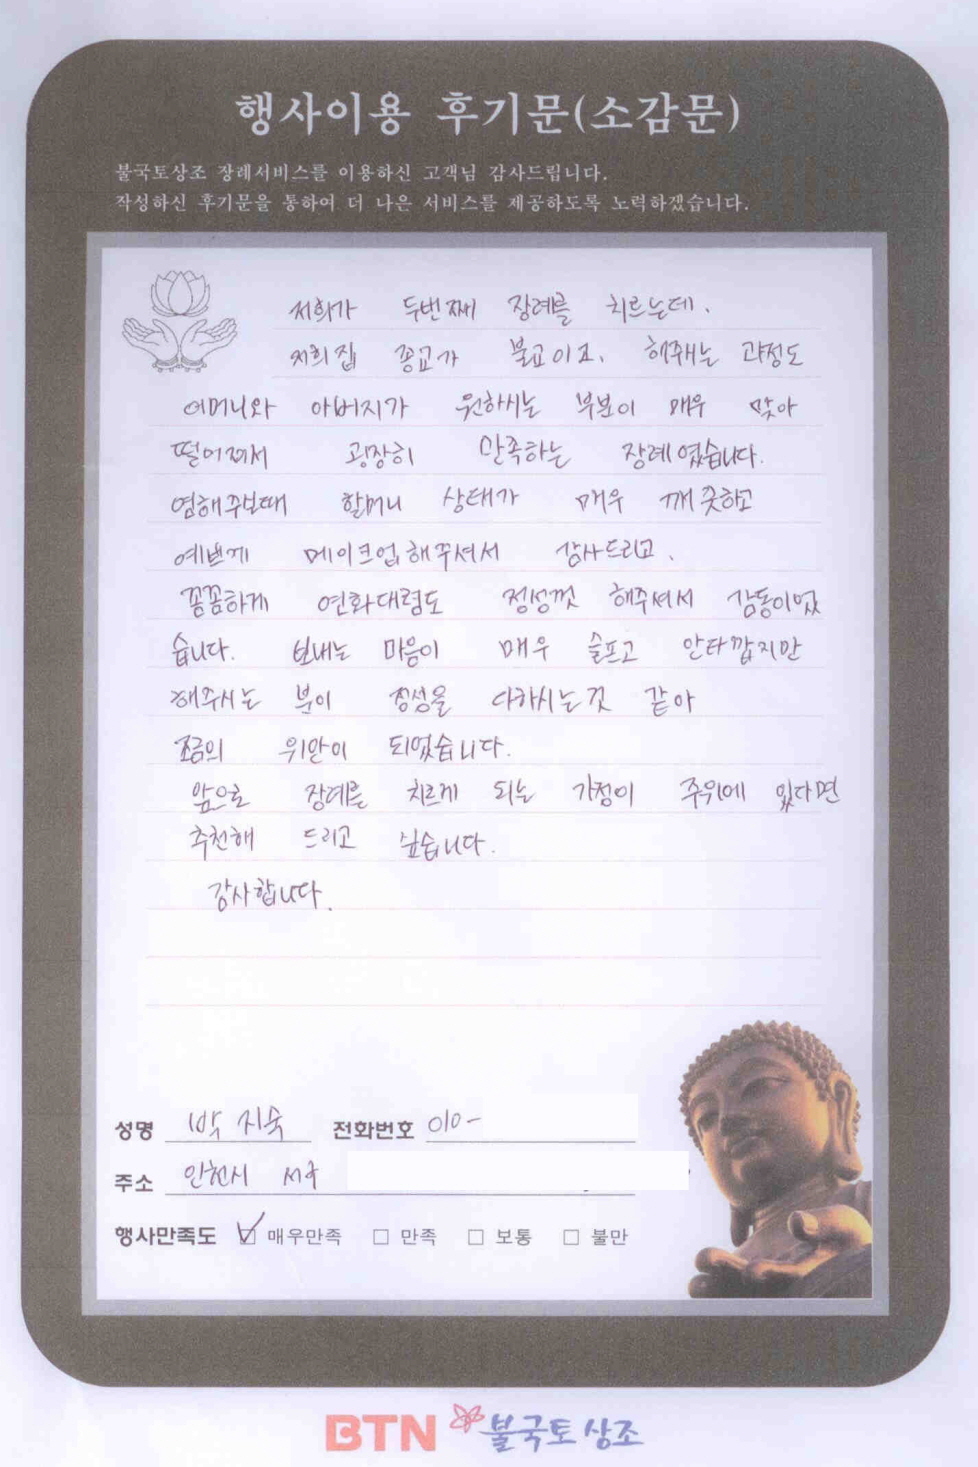 행사이용 후기문(소감문)
불국토상조 장례서비스를 이용하신 고객님 감사드립니다.
작성하신 후기문을 통하여 더 나은 서비스를 제공하도록 노력하겠습니다.
저희가 두번째 장례를 치르는데.
저희집 종교가 불교이죠. 해주는 과정도
어머니와 아버지가 원하시는 부분이 매우 맞아
떨어져서 굉장히 만족하는 장례였습니다.
염해주보때 할머니 상태가 매우 깨끗하고
예쁘게 메이크업해주셔서 감사드리고.
꼼꼼하게 연화대렴도 정성껏 해주셔서 감동이었
습니다. 보내는 마음이 매우 슬프고 안타깝지만
해주시는 분이 정성을 다하시는것 같아
조금의 위안이 되었습니다.
앞으로 장례를 치르게 되는 가정이 주위에 있다면
추천해 드리고 싶습니다.
감사합니다.
성명 박지숙 전화번호 010-
주소 인천시 서구
행사만족도 ☑ 매우만족 □ 만족 □ 보통 □ 불만
BTN 불국토상조